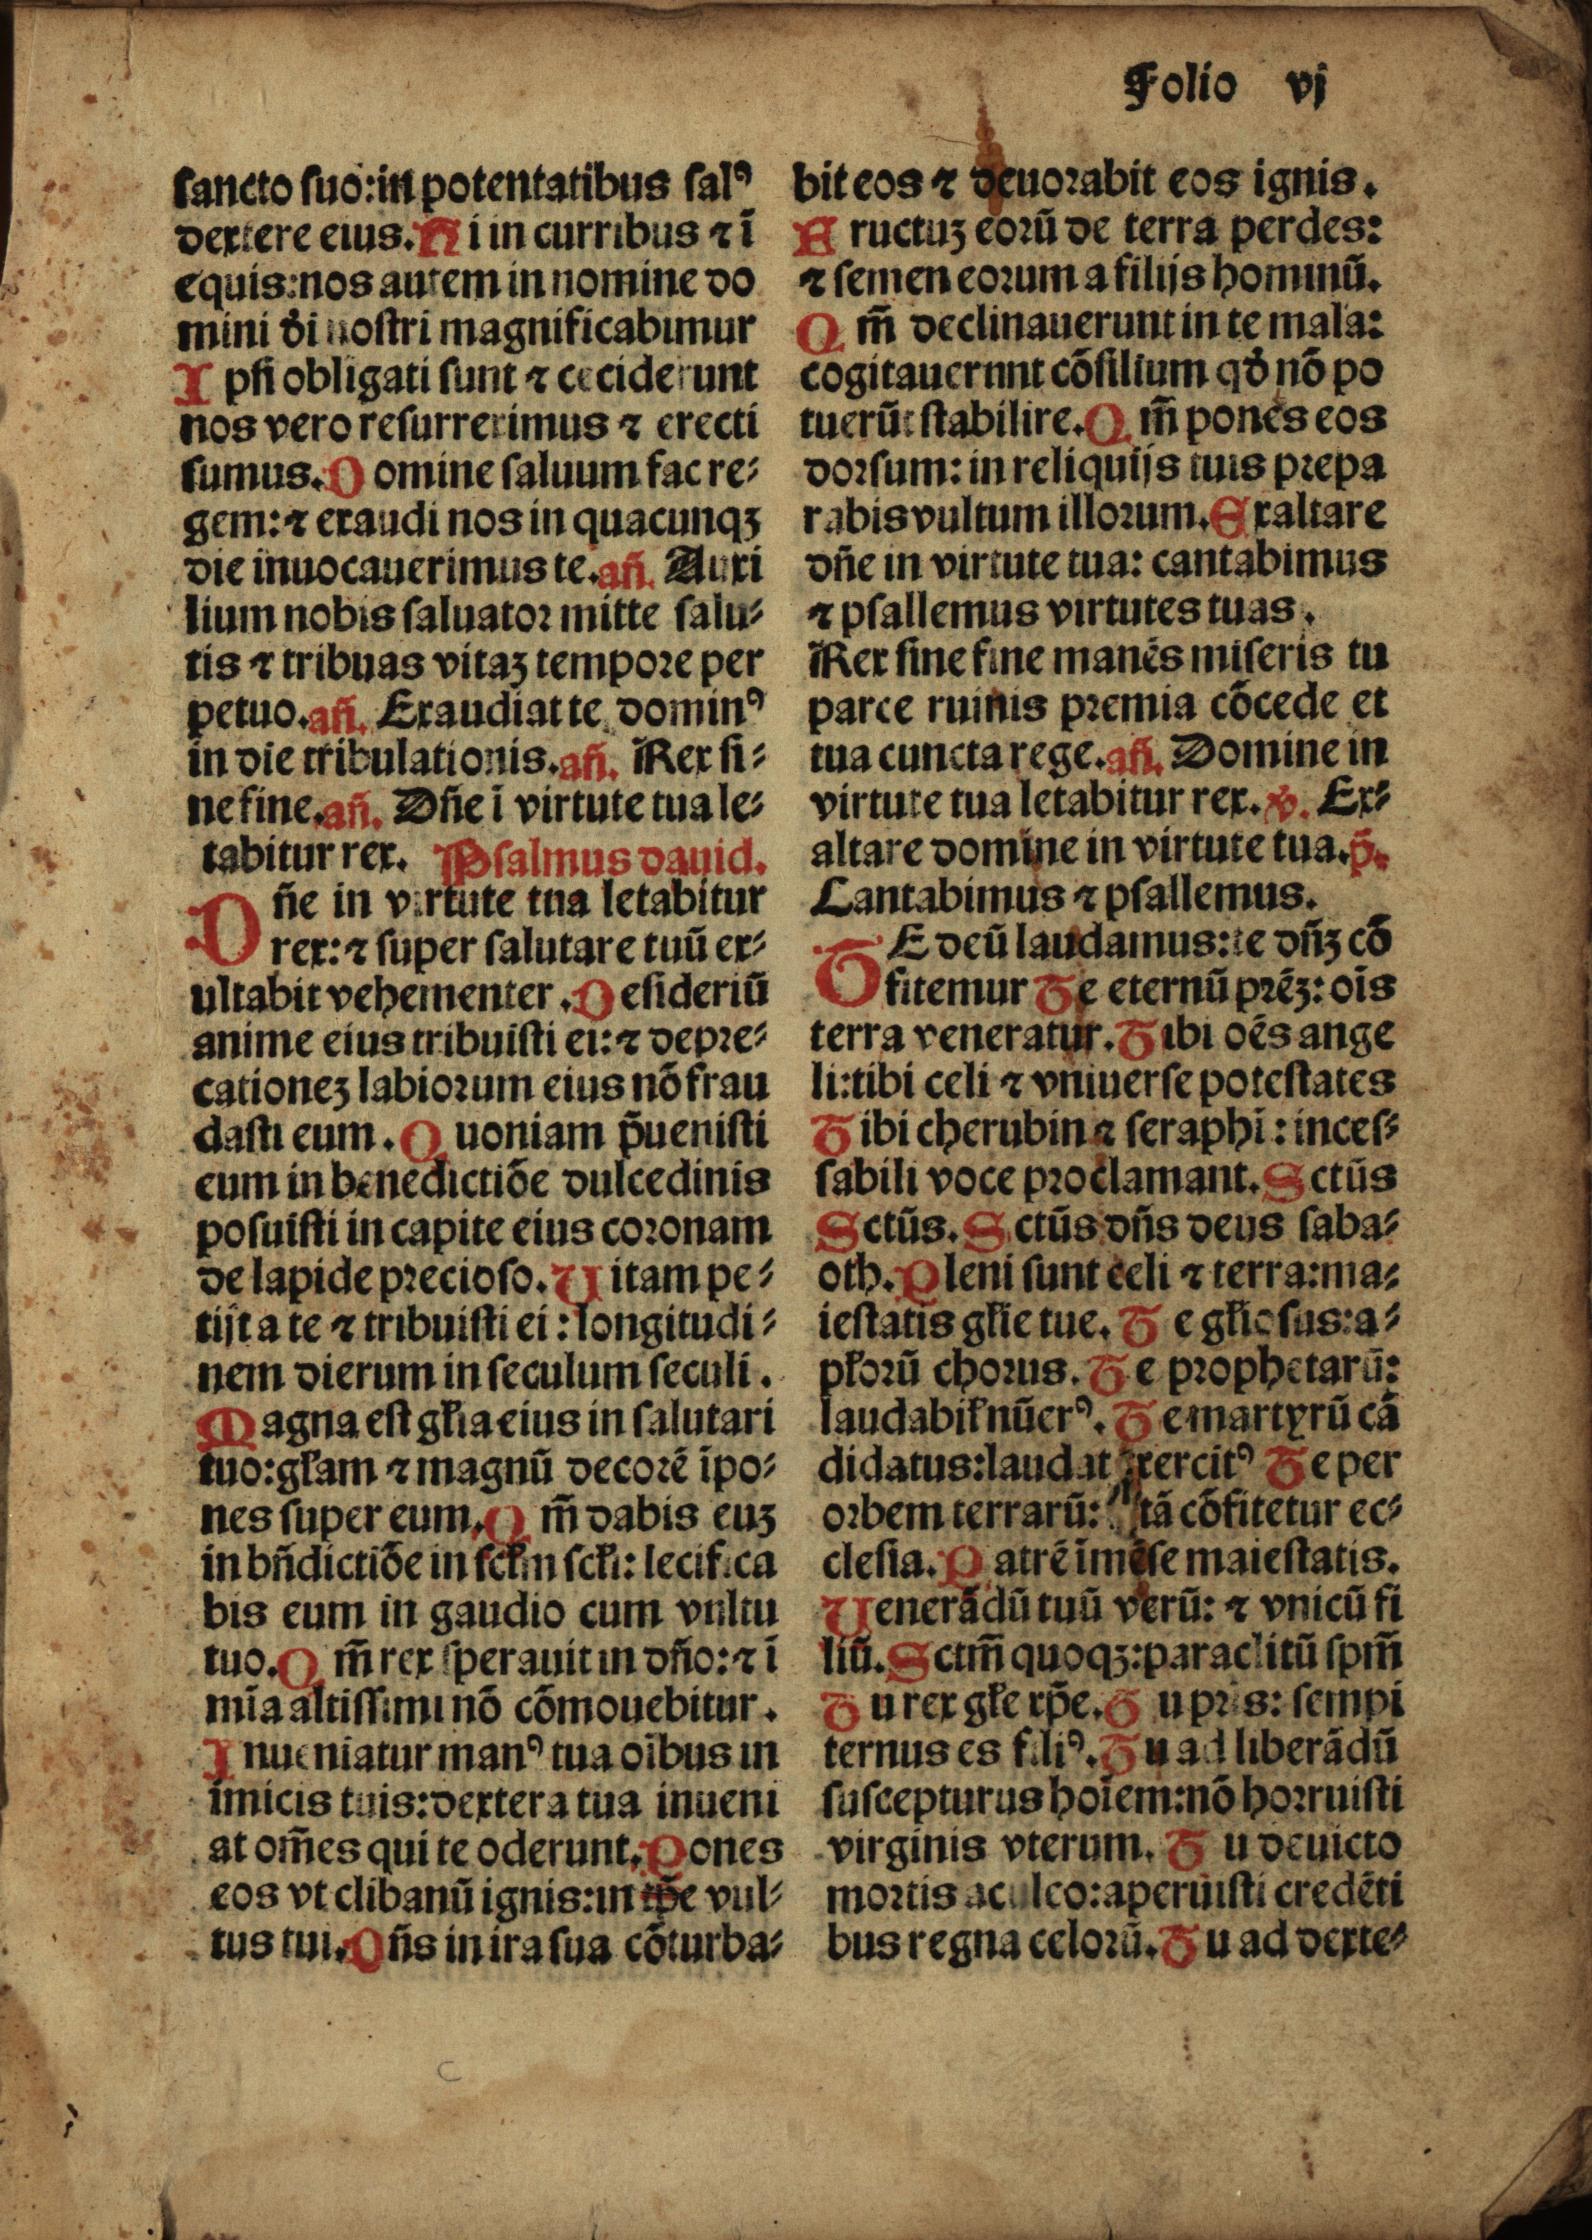 Folio vj
sancto suo:in potentatibus salꝰ
dextere eius. Hi in curribus ⁊ ī
equis:nos autem in nomine do
mini dī nostri magnificabimur
Ipsi obligati sunt ⁊ ceciderunt
nos vero resurreximus ⁊ erecti
sumus. Domine saluum fac re⸗
gem:⁊ exaudi nos in quacunqꝫ
die inuocauerimus te. añ. Auxi
lium nobis saluator mitte salu⸗
tis ⁊ tribuas vitaꝫ tempore per
petuo. añ. Exaudiat te dominꝰ
in die tribulationis. añ. Rex si⸗
ne fine. añ. Dñe ī virtute tua le⸗
tabitur rex. Psalmus dauid.
Dñe in virtute tua letabitur
rex:⁊ super salutare tuū ex⸗
ultabit vehementer. Desideriū
anime eius tribuisti ei:⁊ depre⸗
cationeꝫ labiorum eius nō frau
dasti eum. Quoniam p̄uenisti
eum in benedictiōe dulcedinis
posuisti in capite eius coronam
de lapide precioso. Vitam pe⸗
tijt a te ⁊ tribuisti ei:longitudi⸗
nem dierum in seculum seculi.
Magna est głia eius in salutari
tuo:głam ⁊ magnū decorē īpo⸗
nes super eum. Qm̄ dabis euꝫ
in bñdictiōe in scłm scłi:letifica
bis eum in gaudio cum vultu
tuo. Qm̄ rex sperauit in dño:⁊ ī
mīa altissimi nō cōmouebitur.
Inueniatur manꝰ tua oībus in
imicis tuis:dextera tua inueni
at om̄es qui te oderunt. Pones
eos vt clibanū ignis:in tp̄e vul⸗
tus tui. Dñs in ira sua cōturba⸗
bit eos ⁊ deuorabit eos ignis.
Fructuꝫ eorū de terra perdes:
⁊ semen eorum a filijs hominū.
Qm̄ declinauerunt in te mala:
cogitauernnt cōsilium qđ nō po
tuerūt stabilire. Qm̄ pones eos
dorsum:in reliquijs tuis prepa
rabis vultum illorum. Exaltare
dñe in virtute tua: cantabimus
⁊ psallemus virtutes tuas.
Rex sine fine manēs miseris tu
parce ruinis premia cōcede et
tua cuncta rege. añ. Domine in
virtute tua letabitur rex. ℣. Ex⸗
altare domine in virtute tua. p̄.
Cantabimus ⁊ psallemus.
TE deū laudamus:te dñꝫ cō
fitemur Te eternū prēꝫ: oīs
terra veneratur. Tibi oēs ange
li:tibi celi ⁊ vniuerse potestates
Tibi cherubin ⁊ seraphī:inces⸗
sabili voce proclamant. Sctūs
Sctūs. Sctūs dñs deus saba⸗
oth. Pleni sunt celi ⁊ terra:ma⸗
iestatis głie tue. Te głiosus:a⸗
płorū chorus. Te prophetarū:
laudabił nūerꝰ. Te martyrū cā
didatus:laudat exercitꝰ Te per
orbem terrarū: tā cōfitetur ec⸗
clesia. Patrē īmēse maiestatis.
Venerādū tuū verū: ⁊ vnicū fi
liū. Sctm̄ quoqꝫ:paraclitū spm̄
Tu rex głe xp̄e. Tu pris: sempi
ternus es filiꝰ. Tu ad liberādū
suscepturus hoīem:nō horruisti
virginis vterum. Tu deuicto
mortis aculeo:aperuisti credēti
bus regna celorū. Tu ad dexte⸗